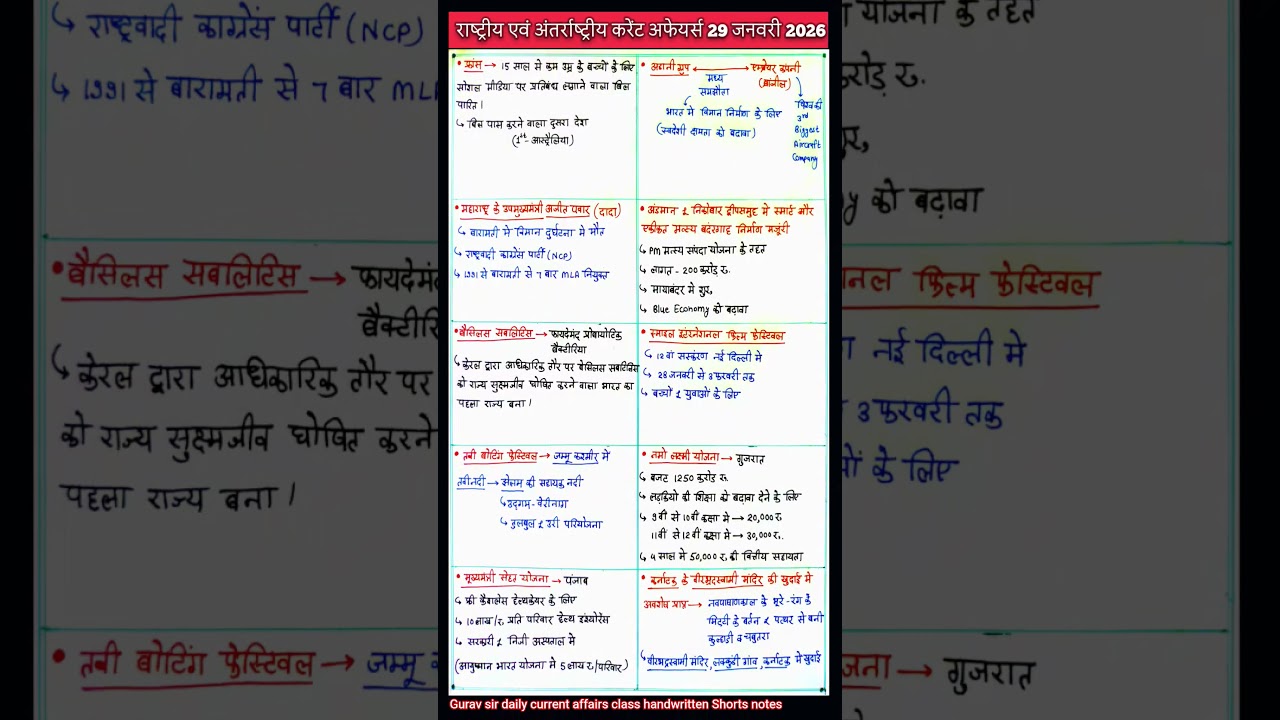 राष्ट्रीय एवं अंतर्राष्ट्रीय करेंट अफेयर्स 29 जनवरी 2026
• फ्रांस → 15 साल से कम उम्र के बच्चों के लिए
सोशल मीडिया पर प्रतिबंध लगाने वाला बिल
पारित।
↳ बिल पास करने वाला दुसरा देश
(1st - आस्ट्रेलिया)
• अडानी ग्रुप ↔ एम्ब्रेयर कंपनी
(ब्राजील)
मध्य
समझौता
भारत में विमान निर्माण के लिए
(स्वदेशी क्षमता को बढावा)
विश्व की
3rd
Biggest
Aircraft
Company
• महाराष्ट्र के उपमुख्यमंत्री अजीत पवार (दादा)
↳ बारामती में विमान दुर्घटना मे मौत
↳ राष्ट्रवादी काग्रेंस पार्टी (NCP)
↳ 1991 से बारामती से 7 बार MLA नियुक्त
• अंडमान & निकोबार द्वीपसमुह में स्मार्ट और
एकीकृत मत्स्य बदंरगाह निर्माण मजूंरी
↳ PM मत्स्य संपदा योजना के तहत
↳ लागत - 200 करोड़ रु.
↳ मायाबंदर मे शुरु,
↳ Blue Economy को बढ़ावा
• बैसिलस सबलिटिस → फायदेमंद प्रोबायोटिक
बैक्टीरिया
↳ केरल द्वारा आधिकारिक तौर पर बैसिलस सबलिटिस
को राज्य सुक्ष्मजीव घोषित करने वाला भारत का
पहला राज्य बना।
• स्माइल इंटरनेशनल फिल्म फेस्टिवल
↳ 12 वा संस्करण नई दिल्ली मे
↳ 28 जनवरी से 3 फरवरी तक
↳ बच्चों & युवाओं के लिए
• तवी बोटिंग फेस्टिवल → जम्मू कश्मीर में
तवी नदी → झेलम की सहायक नदी
↳ उद्गम - वेरीनाग
↳ तुलबुल & उरी परियोजना
• नमो लक्ष्मी योजना → गुजरात
↳ बजट 1250 करोड़ रु.
↳ लड़कियो की शिक्षा को बढावा देने के लिए
↳ 9 वी से 10 वी कक्षा मे → 20,000 रु.
11वीं से 12 वीं कक्षा मे → 30,000 रु.
↳ 4 साल मे 50,000 रु. की वित्तीय सहायता
• मुख्यमंत्री सेहत योजना → पंजाब
↳ फ्री कैशलेस हेल्थकेयर के लिए
↳ 10 लाख/रु. प्रति परिवार हेल्थ इंश्योरेंस
↳ सरकारी & निजी अस्पताल मे
(आयुष्मान भारत योजना मे 5 लाख रु/परिवार)
• कर्नाटक के वीरभद्रस्वामी मंदिर की खुदाई मे
अवशेष प्राप्त → नवपाषाणकाल के भूरे-रंग के
मिट्टी के बर्तन & पत्थर से बनी
कुल्हाडी व चबुतरा
↳ वीरभद्रस्वामी मंदिर, लक्कुंडी गांव, कर्नाटक मे खुदाई
Gurav sir daily current affairs class handwritten Shorts notes
↳ राष्ट्रवादी काग्रेंस पार्टी (NCP)
↳ 1991 से बारामती से 7 बार MLA
• बैसिलस सबलिटिस → फायदेमंद
बैक्टीरि
↳ केरल द्वारा आधिकारिक तौर पर
को राज्य सुक्ष्मजीव घोषित करने
पहला राज्य बना।
• तवी बोटिंग फेस्टिवल → जम्मू
योजना के तहत
करोड़ रु.
को बढ़ावा
नल फिल्म फेस्टिवल
नई दिल्ली मे
3 फरवरी तक
ओं के लिए
जना → गुजरात